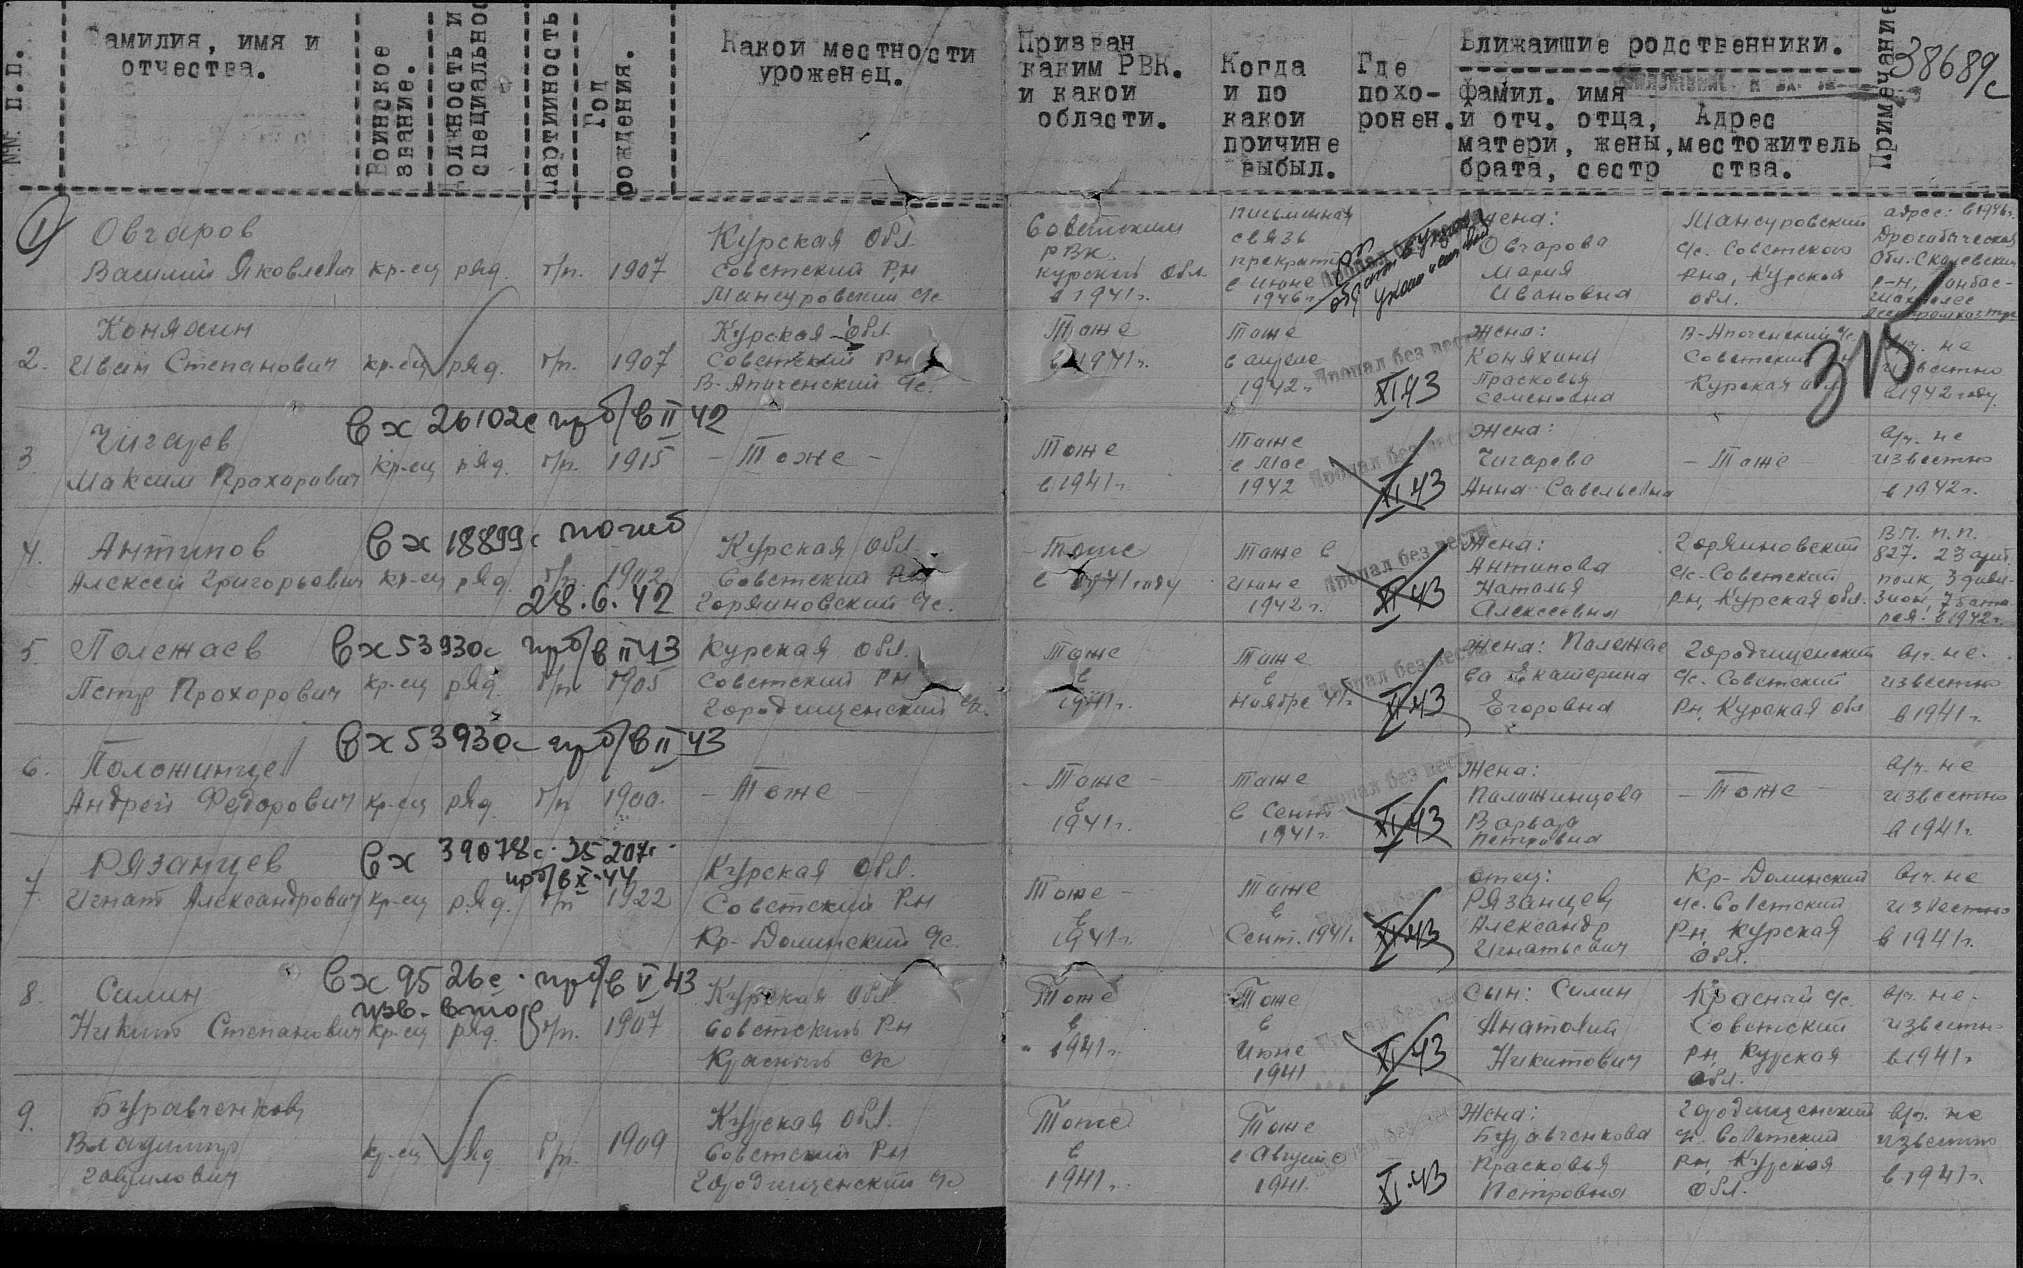 №№ п.п.
Фамилия, имя и
отчества.
Воинское
звание.
Должность и
специальность
Партийность
Год
рождения.
Какой местности
уроженец.
Призван
каким РВК.
и какой
области.
Когда
и по
какой
причине
выбыл.
Где
похо-
ронен.
Ближайшие родственники.
Фамил. имя
и отч. отца,
матери, жены,
брата, сестр
Адрес
местожитель
ства.
Примечание
38689с
315
1)
Овчаров
Василий Яковлевич
кр-ец
ряд.
б/п.
1907
Курская обл
Советский Р,н
Мансуровский с/с
Советским
РВК
Курской обл
в 1941 г.
письменная
связь
прекратил
с июне
1946 г.
Жена:
Овчарова
Мария
Ивановна
Мансуровский
с/с. Советского
Р-на, Курской
обл.
адрес: в 1946 г.
Дрогобическая
Обл.
2.
Коняхин
Иван Степанович
кр-ец
ряд.
б/п.
1907
Курская обл
Советский Рн
В-Апоченский с/с.
Тоже
в 1941 г.
Тоже
в августе
1942 г.
Пропал без вести
XI 43
Жена:
Коняхина
Прасковья
Семеновна
В-Апоченский с/с.
Советский
Курская обл
в/ч. не
известно
в 1942 году.
Вх 26102с приб/в II 42
3.
Чигарев
Максим Прохорович
кр-ец
ряд.
б/п.
1915
- Тоже -
Тоже
в 1941 г.
Тоже
в мае
1942
Пропал без вести
XI 43
Жена:
Чигарева
Анна Савельевна
- Тоже
в/ч. не
известно
в 1942 г.
Вх 18899с погиб
28.6.42
4.
Антипов
Алексей Григорьевич
кр-ец
ряд.
б/п.
1902
Курская обл
Советский Рн
Горяиновский с/с.
- Тоже
в 1941 году
Тоже в
июне
1942 г.
Пропал без вести
XI 43
Жена:
Антипова
Наталья
Алексеевна
Горяиновский
с/с-Советский
Р-н, Курская обл.
В.П. п.п.
827. 23 арт.
полк, 3 диви-
зион, 7 бата
рея. в 1942 г.
Вх 53930с приб/в II 43
5.
Полежаев
Петр Прохорович
кр-ец
ряд.
б/п
1905
Курская обл.
Советский Рн
Городищенский с/с.
Тоже
в
1941 г.
Тоже
в
ноябре 41 г.
Пропал без вести
XI 43
Жена: Полежае
ва Екатерина
Егоровна
Городищенский
с/с. Советский
Рн, Курская обл
в/ч. не.
известно
в 1941 г.
Вх 53930с приб/в II 43
6.
Положинцев
Андрей Федорович
кр-ец
ряд.
б/п
1900.
- Тоже -
- Тоже -
в
1941 г.
Тоже
в Сент
1941 г.
Пропал без вести
XI 43
Жена:
Положинцева
Варвара
Петровна
- Тоже -
в/ч. не
известно
в 1941 г.
Вх 39078с
приб/в X-44
7.
Рязанцев
Игнат Александрович
кр-ец
ряд.
б/п
1922
Курская обл.
Советский Рн
Кр-Долинский с/с.
Тоже -
в
1941 г.
Тоже
в
Сент. 1941 г.
XI 43
отец:
Рязанцев
Александр
Игнатьевич
Кр-Долинский
с/с. Советский
Р-н, Курская
обл.
в/ч. не
известно
в 1941 г.
Вх 9526с приб/в V 43
изв. втор
8.
Силин
Никита Степанович
кр-ец
ряд.
б/п.
1907
Курская обл
Советский Рн
Красный с/с
Тоже
в
1941 г.
Тоже
в
июне
1941
XI 43
Сын: Силин
Анатолий
Никитович
Красный с/с.
Советский
Р-н, Курская
обл.
в/ч. не.
известн
в 1941 г
9.
Буравченков
Владимир
Гаврилович
кр-ец
ряд
б/п.
1909
Курская обл.
Советский Рн
Городищенский с/с
Тоже
в
1941 г.
Тоже
в Августе
1941.
XI.43
Жена:
Буравченкова
Прасковья
Петровна
Городищенский
с/с. Советский
Р-н, Курская
обл.
в/ч. не
известно
в 1941 г.